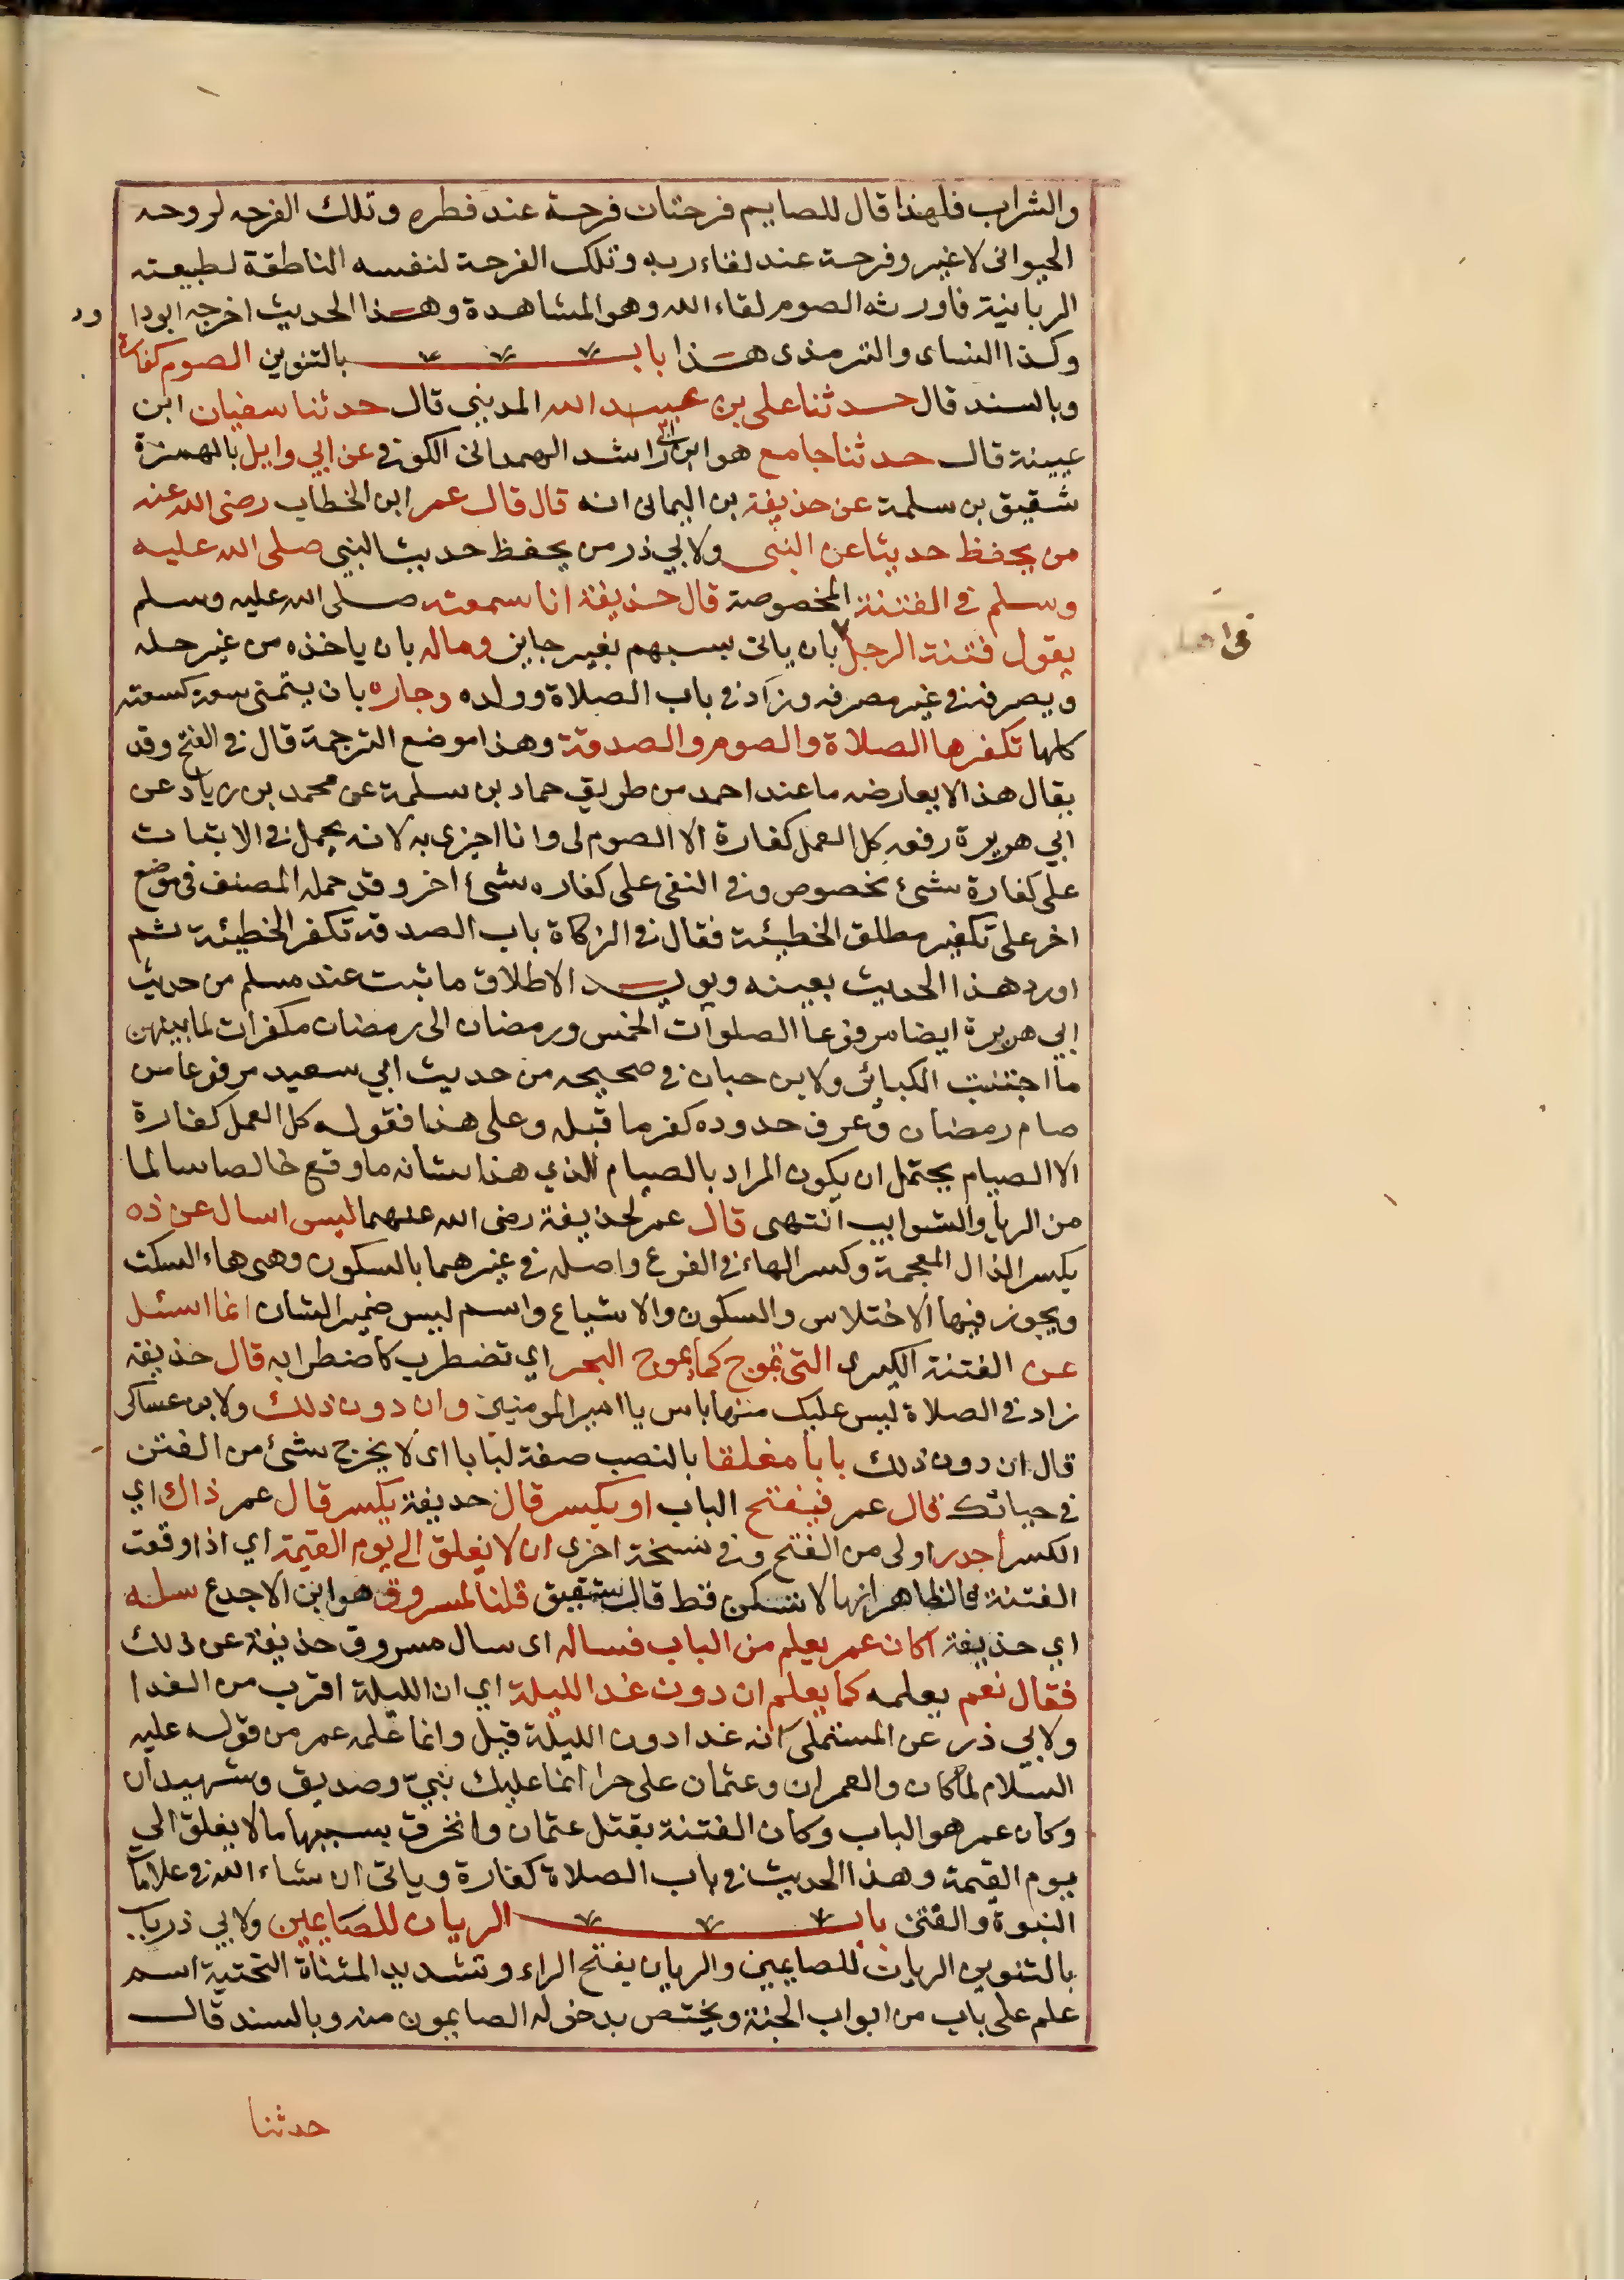 والشراب فلهذا قال للصايم فرحتان فرحة عند فطره وتلك الفرحه لروحه
الحيوانى لا غير وفرحة عند لقاء ربه وتلك الفرحة لنفسه الناطقة لطبيعته
الربانية فاورثه الصوم لقاء الله وهو المشاهدة وهذا الحديث اخرجه ابودا ود
وكذا النساى والترمذى هذا باب بالتنوين الصوم كفارة
وبالسند قال حدثنا على بن عبيد الله المديني قال حدثنا سفيان ابن
عيينة قال حدثنا جامع هو ابن ابى راشد الهمدانى الكوفى عن ابي وايل بالهمزة
شقيق بن سلمة عن حذيفة بن اليمانى انه قال قال عمر ابن الخطاب رضى الله عنه
من يحفظ حديثا عن النبى ولابي ذر من يحفظ حديث النبي صلى الله عليه
وسلم فى الفتنة المخصوصة قال حذيفة انا سمعته صلى الله عليه وسلم
يقول فتنة الرجل بان ياتى بسببهم بغير جايز وماله بان ياخذه من غير حله
فى اهله
ويصرفه فى غير مصرفه وزاد فى باب الصلاة وولده وجاره بان يتمنى سعة كسعته
كلها تكفرها الصلاة والصوم والصدقة وهذا موضع الترجمة قال فى الفتح وقد
يقال هذا لا يعارضه ما عند احمد من طريق حماد بن سلمة عن محمد بن زياد عن
ابي هريرة رفعه كل العمل كفارة الا الصوم لى وانا اجزى به لانه يحمل فى الاثبات
على كفارة شئ مخصوص وفى النفى على كفاره شئ اخر وقد حمله المصنف فى موضع
اخر على تكفير مطلق الخطيئة فقال فى الزكاة باب الصدقة تكفر الخطيئة ثم
اورد هذا الحديث بعينه ويويد الاطلاق ما ثبت عند مسلم من حديث
ابي هريرة ايضا مرفوعا الصلوات الخمس ورمضان الى رمضان مكفرات لما بينهن
ما اجتنبت الكبائر ولابن حبان فى صحيحه من حديث ابي سعيد مرفوعا من
صام رمضان وعرف حدوده كفر ما قبله وعلى هذا فقوله كل العمل كفارة
الا الصيام يحتمل ان يكون المراد بالصيام الذي هذا شانه ما وقع خالصا سالما
من الريا والشوايب انتهى قال عمر لحذيفة رضى الله عنهما ليس اسال عن ذه
بكسر الذال المعجمة وكسر الهاء فى الفرع واصله فى غيرهما بالسكون وهى هاء السكت
ويجوز فيها الاختلاس والسكون والاشباع واسم ليس ضمير الشان انما اسئل
عن الفتنة الكبرى التى تموج كما يموج البحر اي تضطرب كاضطرابه قال حذيفة
زاد فى الصلاة ليس عليك منها باس يا امير المومنين وان دون ذلك ولابن عساكر
قال ان دون ذلك بابا مغلقا بالنصب صفة لبابا اى لا يخرج شئ من الفتن
فى حياتك قال عمر فيفتح الباب او يكسر قال حذيفة يكسر قال عمر ذاك اي
الكسر اجدر اولى من الفتح وفى نسخة اخرى ان لا يغلق الى يوم القيمة اي اذا وقعت
الفتنة فالظاهر انها لا تسكن قط قال شقيق قلنا لمسروق هو ابن الاجدع سله
اي حذيفة اكان عمر يعلم من الباب فساله اى سال مسروق حذيفة عن ذلك
فقال نعم يعلمه كما يعلم ان دون غد الليلة اي ان الليلة اقرب من الغدا
ولابي ذر عن المستملى انه غدا دون الليلة قيل وانما علمه عمر من قوله عليه
السلام لما كان والعمران وعثمان على حرا انما عليك نبيّ وصديق وشهيدان
وكان عمر هو الباب وكان الفتنة بقتل عثمان وانخرق بسببها ما لا يغلق الى
يوم القيمة وهذا الحديث فى باب الصلاة كفارة وياتى ان شاء الله فى علامات
النبوة والفتن باب الريان للصايمين ولابي ذر باب
بالتنوين الريان للصايمين والريان بفتح الراء وتشديد المثناة التحتية اسم
علم على باب من ابواب الجنة ويختص بدخوله الصايمون منه وبالسند قال
حدثنا